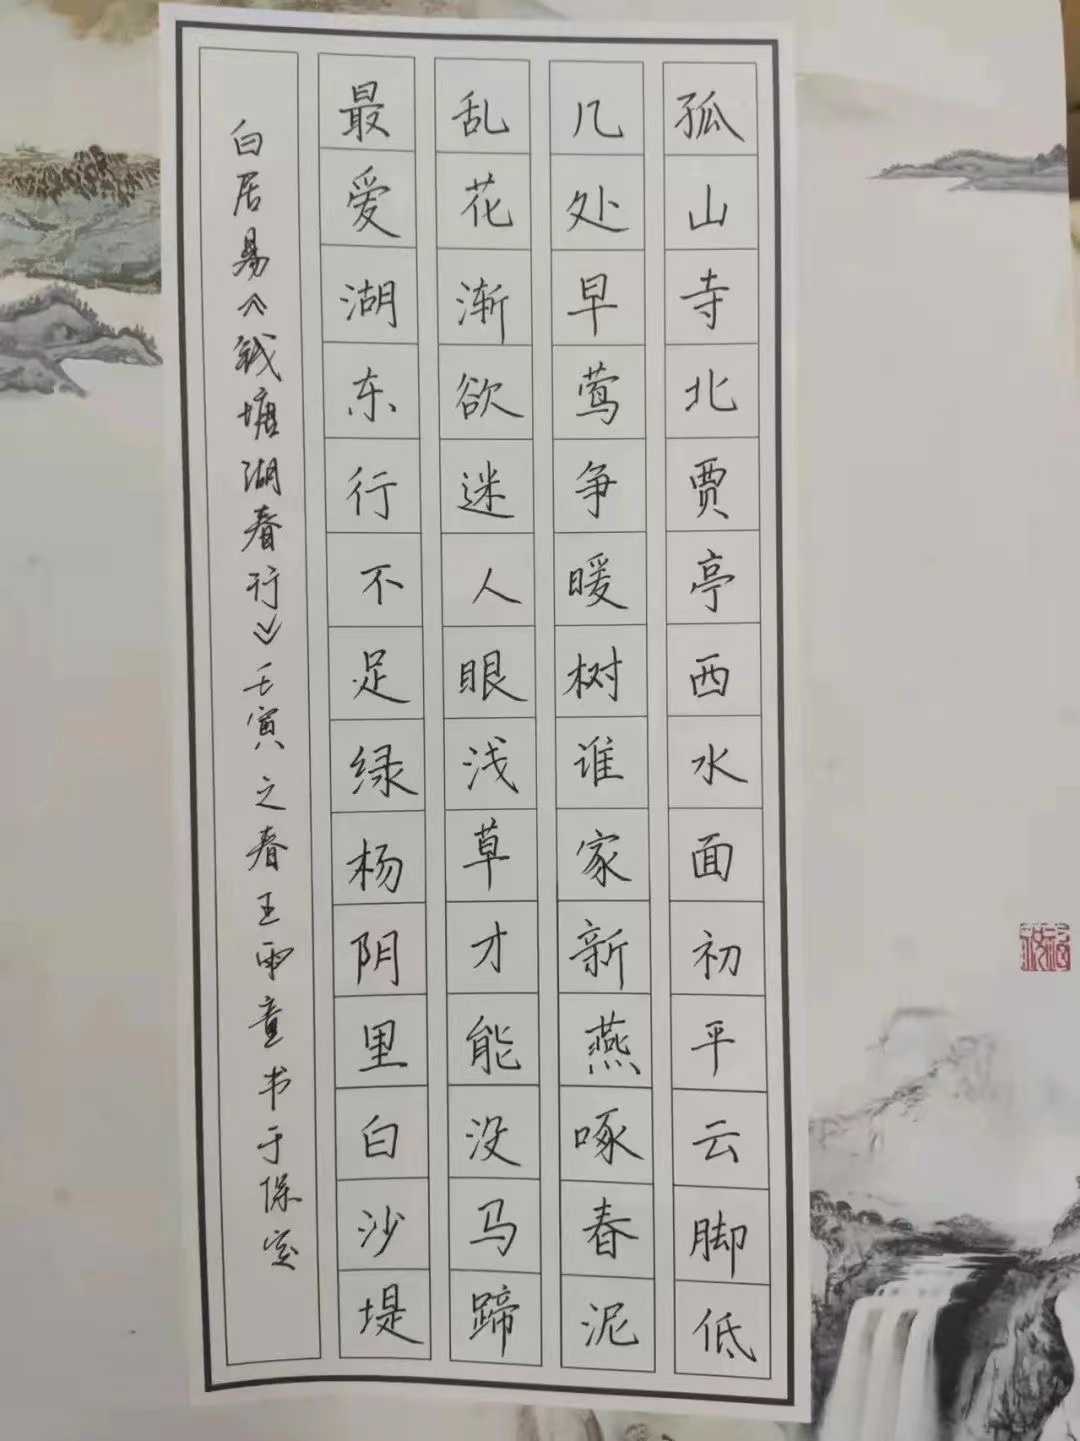 孤山寺北贾亭西水面初平云脚低
几处早莺争暖树谁家新燕啄春泥
乱花渐欲迷人眼浅草才能没马蹄
最爱湖东行不足绿杨阴里白沙堤
白居易《钱塘湖春行》壬寅之春王雨童书于保定